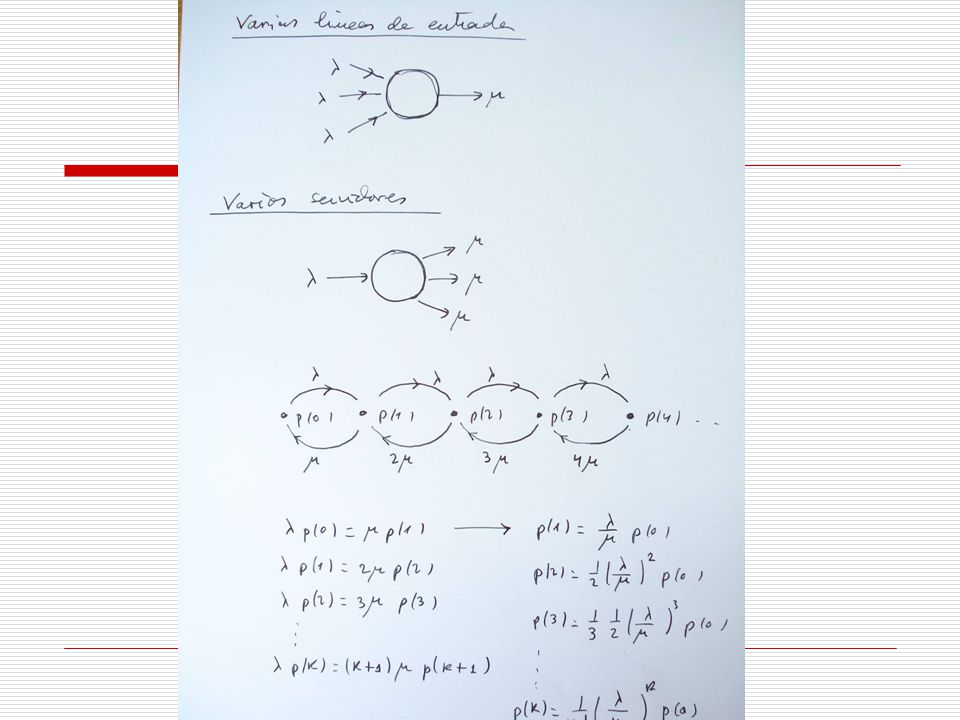 Varias lineas de entrada
λ
λ → μ
λ
Varios servidores
μ
λ → μ
μ
λ λ λ λ
p(0) p(1) p(2) p(3) p(4) ...
μ 2μ 3μ 4μ
λ p(0) = μ p(1) → p(1) = λ/μ p(0)
λ p(1) = 2μ p(2) p(2) = 1/2 (λ/μ)^2 p(0)
λ p(2) = 3μ p(3) p(3) = 1/3 1/2 (λ/μ)^3 p(0)
λ p(k) = (k+1) μ p(k+1)
p(k) = 1/k! (λ/μ)^k p(0)